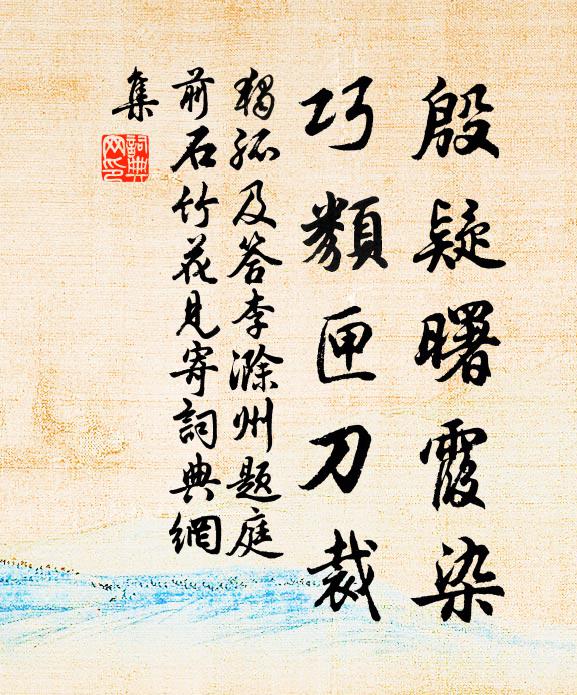 殷疑曙霞染
巧類匣刀裁
獨孤及答李滁州題庭
前石竹花見寄詞典網
集
詞典
网印